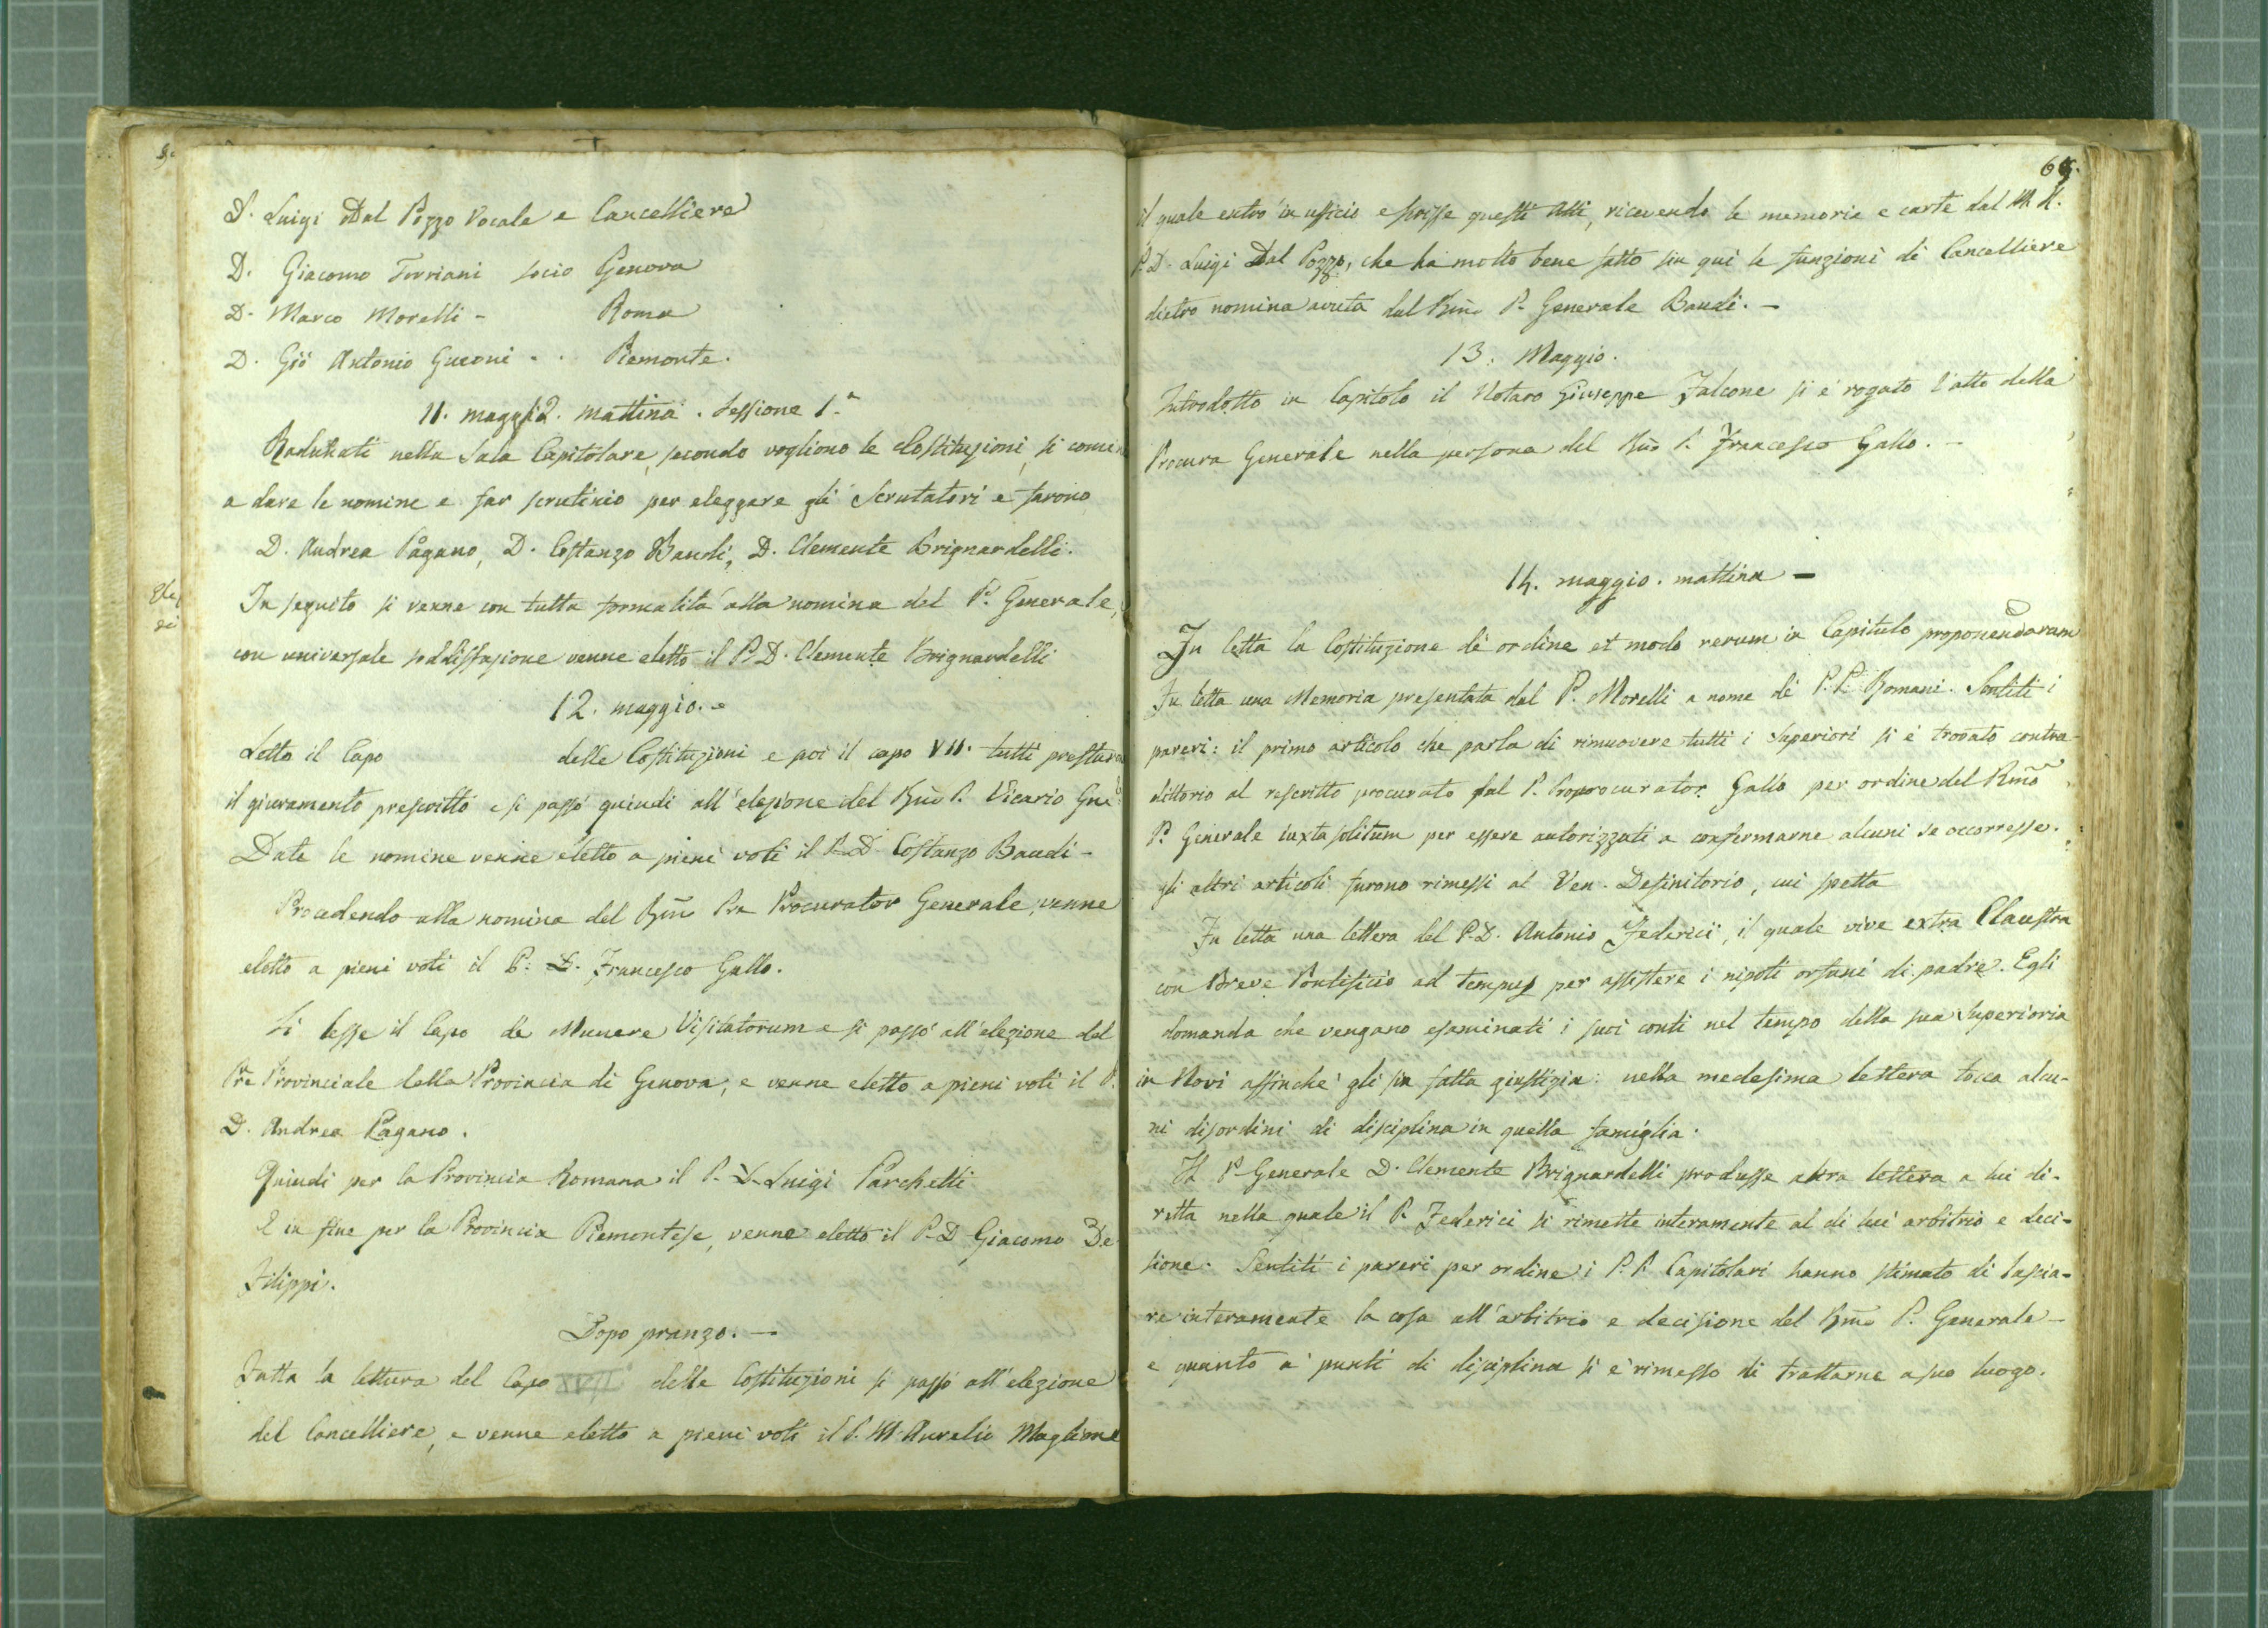 D. Luigi Dal Pozzo Vocale e Cancelliere
D. Giacomo Torriani socio Genova
D. Marco Morelli - Roma
D. Gio Antonio Guconi . . Piemonte.
11. maggio. mattina. Sessione 1.a
Radunati nella Sala Capitolare, secondo vogliono le Costituzioni, si comin
a dare le nomine e far scrutinio per eleggere gli Scrutatori e furono
D. Andrea Pagano, D. Costanzo Baudi, D. Clemente Brignardelli.
In seguito si venne con tutta formalità alla nomina del P. Generale,
con universale soddisfazione venne eletto il P. D. Clemente Brignardelli
12. maggio. -
Letto il Capo delle Costituzioni e poi il capo VII. tutti prestaro
il giuramento prescritto e si passò quindi all'elezione del Rmo P. Vicario Gne
Date le nomine venne eletto a pieni voti il P. D. Costanzo Baudi -
Procedendo alla nomina del Rmo Pre Procurator Generale, venne
eletto a pieni voti il P. D. Francesco Gallo.
Si lesse il Capo de Munere Visitatorum e si passò all'elezione del
Pre Provinciale della Provincia di Genova, e venne eletto a pieni voti il P.
D. Andrea Pagano.
Quindi per la Provincia Romana il P. D. Luigi Parchetti
E in fine per la Provincia Piemontese, venne eletto il P. D. Giacomo De
Filippi.
Dopo pranzo. -
Fatta la lettura del Capo delle Costituzioni si passò all'elezione
del Cancelliere, e venne eletto a pieni voti il P. M. Aurelio Maglione
il quale entrò in ufficio e scrisse questi Atti, ricevendo le memorie e carte dal M. R.
P. D. Luigi Dal Pozzo, che ha molto bene fatto sin quì le funzioni di Cancelliere
dietro nomina avuta dal Rmo P. Generale Baudi. -
13. Maggio.
Introdotto in Capitolo il Notaro Giuseppe Falcone si è rogato l'atto della
Procura Generale nella persona del Rmo P. Francesco Gallo. -
14. maggio. mattina -
Fu letta la Costituzione de ordine et modo rerum in Capitulo proponendarum
Fu letta una Memoria presentata dal P. Morelli a nome de P. P. Romani. Sentiti i
pareri: il primo articolo che parla di rimuovere tutti i Superiori si è trovato contra-
dittorio al rescritto procurato dal P. Proprocurator Gallo per ordine del Rmo
P. Generale iuxta solitum per essere autorizzati a confermarne alcuni se occorresse.
gli altri articoli furono rimessi al Ven. Definitorio, cui spetta
Fu letta una lettera del P. D. Antonio Federici, il quale vive extra Claustra
con Breve Pontificio ad tempus per assistere i nipoti orfani di padre. Egli
domanda che vengano esaminati i suoi conti nel tempo della sua Superioria
in Novi affinchè gli sia fatta giustizia: nella medesima lettera tocca alcu-
ni disordini di disciplina in quella famiglia.
Il P. Generale D. Clemente Brignardelli produsse altra lettera a lui di-
retta nella quale il P. Federici si rimette interamente al di lui arbitrio e deci-
sione. Sentiti i pareri per ordine i P. P. Capitolari hanno stimato di lascia-
re interamente la cosa all'arbitrio e decisione del Rmo P. Generale -
e quanto a' punti di disciplina si è rimesso di trattarne a suo luogo.